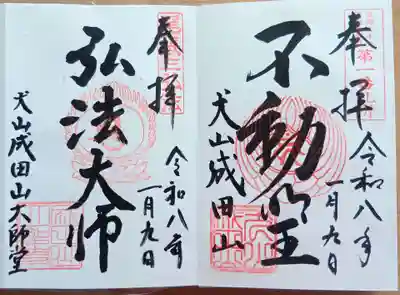 奉拝
不動明王
犬山成田山
令和八年
一月九日
奉拝
弘法大師
犬山成田山大師堂
令和八年
一月九日